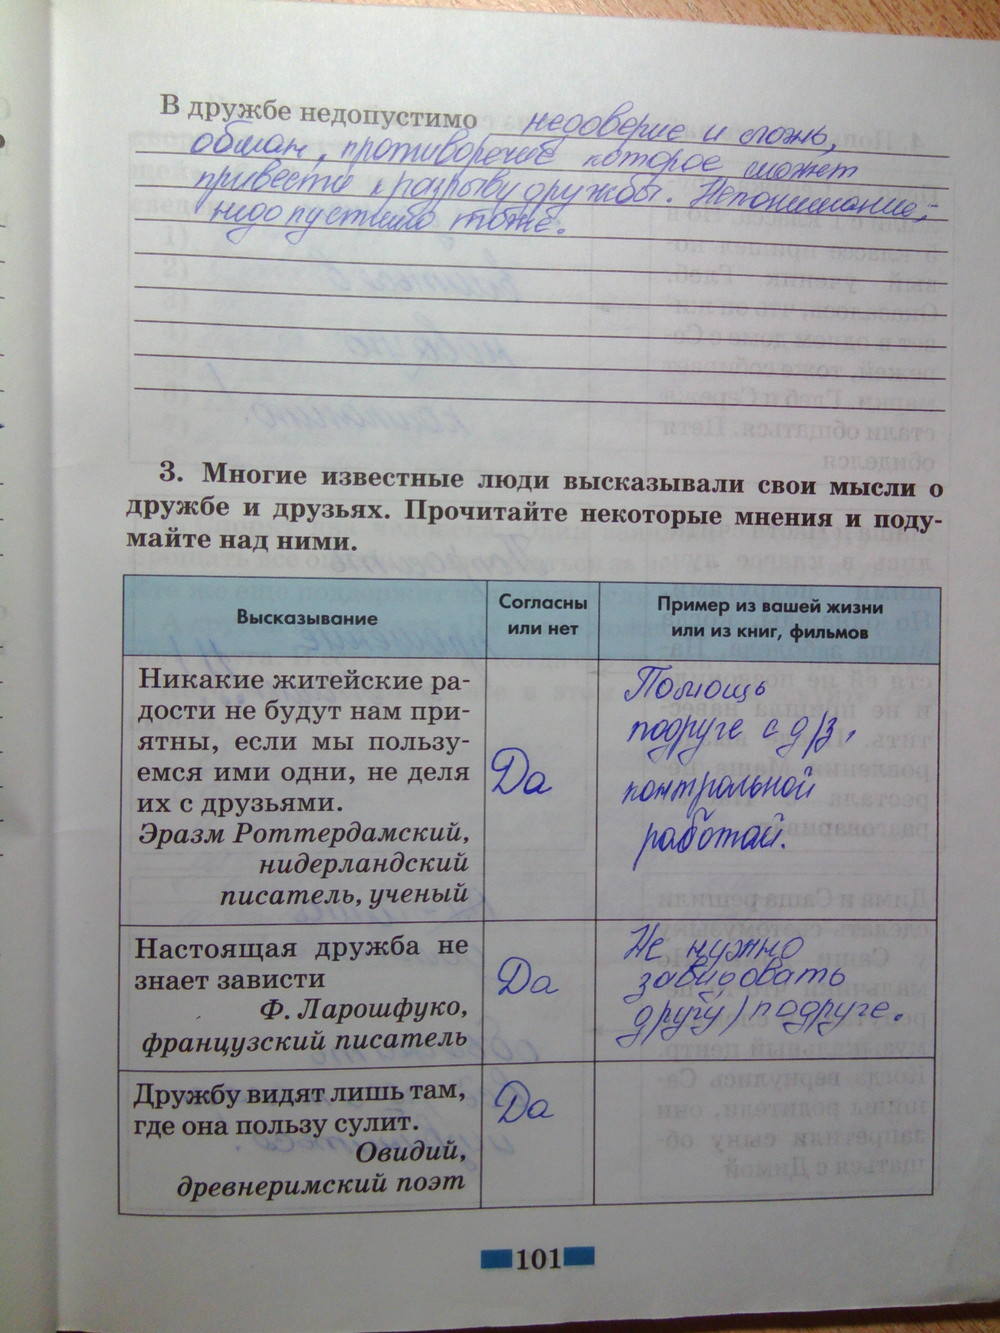 В дружбе недопустимо недоверие и ложь,
обман, противоречие которое может
привести к разрыву дружбы. Непонимание,
недопустимо тоже.
3. Многие известные люди высказывали свои мысли о
дружбе и друзьях. Прочитайте некоторые мнения и поду-
майте над ними.
Высказывание
Согласны
или нет
Пример из вашей жизни
или из книг, фильмов
Никакие житейские ра-
дости не будут нам при-
ятны, если мы пользу-
емся ими одни, не деля
их с друзьями.
Эразм Роттердамский,
нидерландский
писатель, ученый
Да
Помощь
подруге с д/з,
контрольной
работай.
Настоящая дружба не
знает зависти
Ф. Ларошфуко,
французский писатель
Да
Не нужно
завидовать
другу/подруге.
Дружбу видят лишь там,
где она пользу сулит.
Овидий,
древнеримский поэт
Да
101